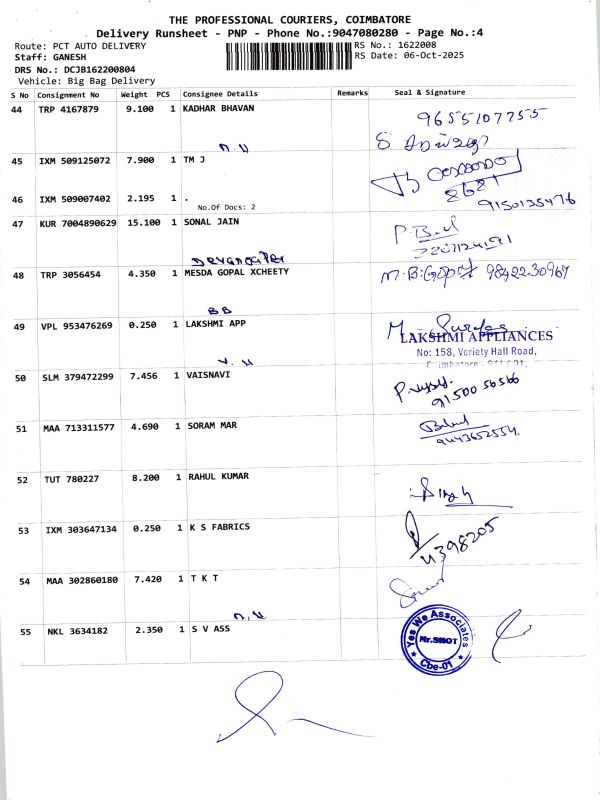 THE PROFESSIONAL COURIERS, COIMBATORE
Delivery Runsheet - PNP - Phone No.:9047080280 - Page No.:4
Route: PCT AUTO DELIVERY RS No.: 1622008
Staff: GANESH RS Date: 06-Oct-2025
DRS No.: DCJB162200804
Vehicle: Big Bag Delivery
S No Consignment No Weight PCS Consignee Details Remarks Seal & Signature
44 TRP 4167879 9.100 1 KADHAR BHAVAN 9655107755
45 IXM 509125072 7.900 1 TM J
46 IXM 509007402 2.195 1 . 9150135476
No.Of Docs: 2
47 KUR 7004890629 15.100 1 SONAL JAIN
48 TRP 3056454 4.350 1 MESDA GOPAL XCHEETY 9842230967
BB
49 VPL 953476269 0.250 1 LAKSHMI APP
LAKSHMI APPLIANCES
No: 158, Veriety Hall Road,
V. H
50 SLM 379472299 7.456 1 VAISNAVI
91500 56566
51 MAA 713311577 4.690 1 SORAM MAR
9443652554.
52 TUT 780227 8.200 1 RAHUL KUMAR
Singh
53 IXM 303647134 0.250 1 K S FABRICS
4398205
54 MAA 302860180 7.420 1 T K T
55 NKL 3634182 2.350 1 S V ASS
Yes We Associates
Mr.SHOT
Cbe-01